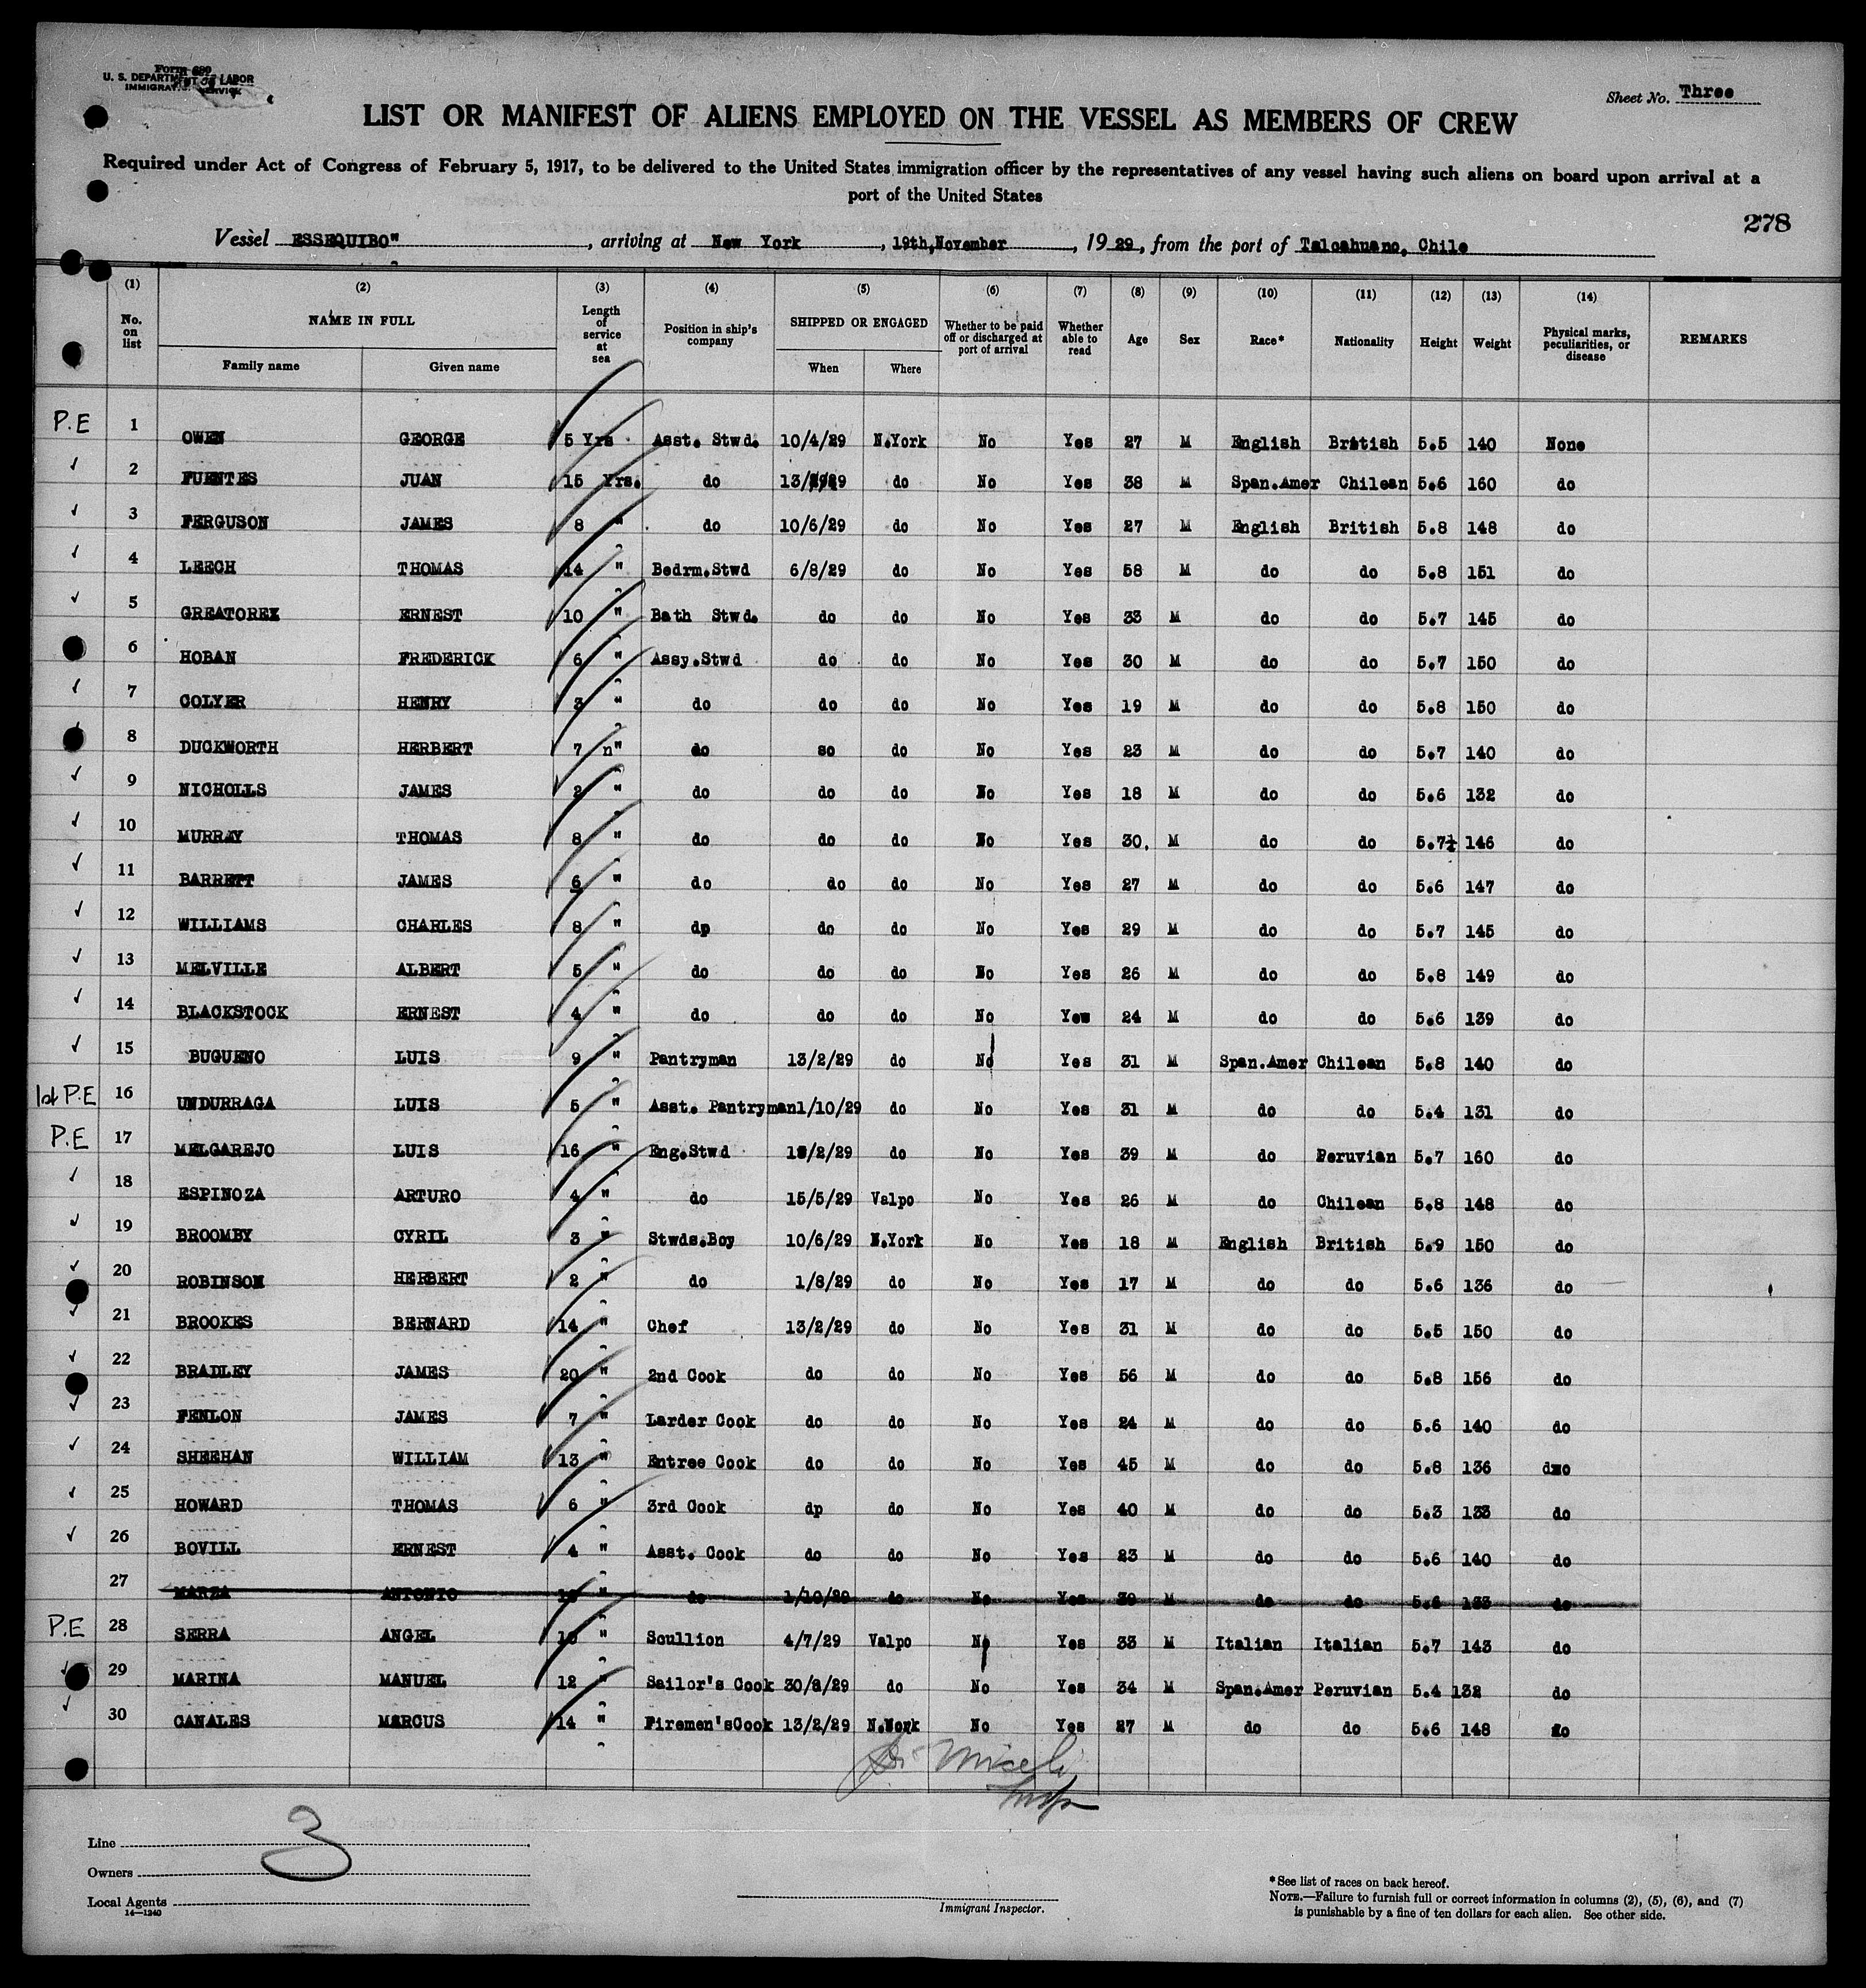 Form 689
U. S. DEPARTMENT OF LABOR
IMMIGRATION SERVICE
Sheet No. Three
LIST OR MANIFEST OF ALIENS EMPLOYED ON THE VESSEL AS MEMBERS OF CREW
Required under Act of Congress of February 5, 1917, to be delivered to the United States immigration officer by the representatives of any vessel having such aliens on board upon arrival at a
port of the United States
278
Vessel ESSEQUIBO", arriving at New York, 19th,November, 1929, from the port of Talcahuano, Chile
(1) (2) (3) (4) (5) (6) (7) (8) (9) (10) (11) (12) (13) (14)
No. on list NAME IN FULL Family name Given name Length of service at sea Position in ship's company SHIPPED OR ENGAGED When Where Whether to be paid off or discharged at port of arrival Whether able to read Age Sex Race* Nationality Height Weight Physical marks, peculiarities, or disease REMARKS
P.E 1 OWEN GEORGE 5 Yrs Asst. Stwd. 10/4/29 N.York No Yes 27 M English British 5.5 140 None
✓ 2 FUENTES JUAN 15 Yrs. do 13/ 29 do No Yes 38 M Span.Amer Chilean 5.6 160 do
✓ 3 FERGUSON JAMES 8 " do 10/6/29 do No Yes 27 M English British 5.8 148 do
✓ 4 LEECH THOMAS 14 " Bedrm.Stwd 6/8/29 do No Yes 58 M do do 5.8 151 do
✓ 5 GREATOREX ERNEST 10 " Bath Stwd. do do No Yes 33 M do do 5.7 145 do
6 HOBAN FREDERICK 6 " Assy.Stwd do do No Yes 30 M do do 5.7 150 do
✓ 7 COLYER HENRY 3 " do do do No Yes 19 M do do 5.8 150 do
8 DUCKWORTH HERBERT 7 n" do so do No Yes 23 M do do 5.7 140 do
✓ 9 NICHOLLS JAMES 2 " do do do No Yes 18 M do do 5.6 132 do
✓ 10 MURRAY THOMAS 8 " do do do No Yes 30. M do do 5.7½ 146 do
✓ 11 BARRETT JAMES 6 " do do do No Yes 27 M do do 5.6 147 do
✓ 12 WILLIAMS CHARLES 8 " dp do do No Yes 29 M do do 5.7 145 do
✓ 13 MELVILLE ALBERT 5 " do do do No Yes 26 M do do 5.8 149 do
✓ 14 BLACKSTOCK ERNEST 4 " do do do No Yew 24 M do do 5.6 139 do
✓ 15 BUGUENO LUIS 9 " Pantryman 13/2/29 do No Yes 31 M Span.Amer Chilean 5.8 140 do
1st P.E 16 UNDURRAGA LUIS 5 " Asst. Pantryman1/10/29 do No Yes 31 M do do 5.4 131 do
P.E 17 MELGAREJO LUIS 16 " Eng.Stwd 13/2/29 do No Yes 39 M do Peruvian 5.7 160 do
✓ 18 ESPINOZA ARTURO 4 " do 15/5/29 Valpo No Yes 26 M do Chilean 5.8 148 do
✓ 19 BROOMBY CYRIL 3 " Stwds.Boy 10/6/29 N.York No Yes 18 M English British 5.9 150 do
✓ 20 ROBINSON HERBERT 2 " do 1/8/29 do No Yes 17 M do do 5.6 136 do
✓ 21 BROOKES BERNARD 14 " Chef 13/2/29 do No Yes 31 M do do 5.5 150 do
✓ 22 BRADLEY JAMES 20 " 2nd Cook do do No Yes 56 M do do 5.8 156 do
✓ 23 FENLON JAMES 7 " Larder Cook do do No Yes 24 M do do 5.6 140 do
✓ 24 SHEEHAN WILLIAM 13 " Entree Cook do do No Yes 45 M do do 5.8 136 dmo
✓ 25 HOWARD THOMAS 6 " 3rd Cook dp do No Yes 40 M do do 5.3 133 do
✓ 26 BOVILL ERNEST 4 " Asst. Cook do do No Yes 23 M do do 5.6 140 do
27 MARZA ANTONIO " do 1/10/29 do No Yes 39 M do do 5.6 133 do
P.E 28 SERRA ANGEL 10 " Scullion 4/7/29 Valpo No Yes 33 M Italian Italian 5.7 143 do
✓ 29 MARINA MANUEL 12 " Sailor's Cook 30/8/29 do No Yes 34 M Span.Amer Peruvian 5.4 132 do
✓ 30 CANALES MARCUS 14 " Firemen'sCook 13/2/29 N.York No Yes 27 M do do 5.6 148 do
Insp
Line 3
Owners
Local Agents
14—1240
Immigrant Inspector.
*See list of races on back hereof.
NOTE.—Failure to furnish full or correct information in columns (2), (5), (6), and (7)
is punishable by a fine of ten dollars for each alien. See other side.